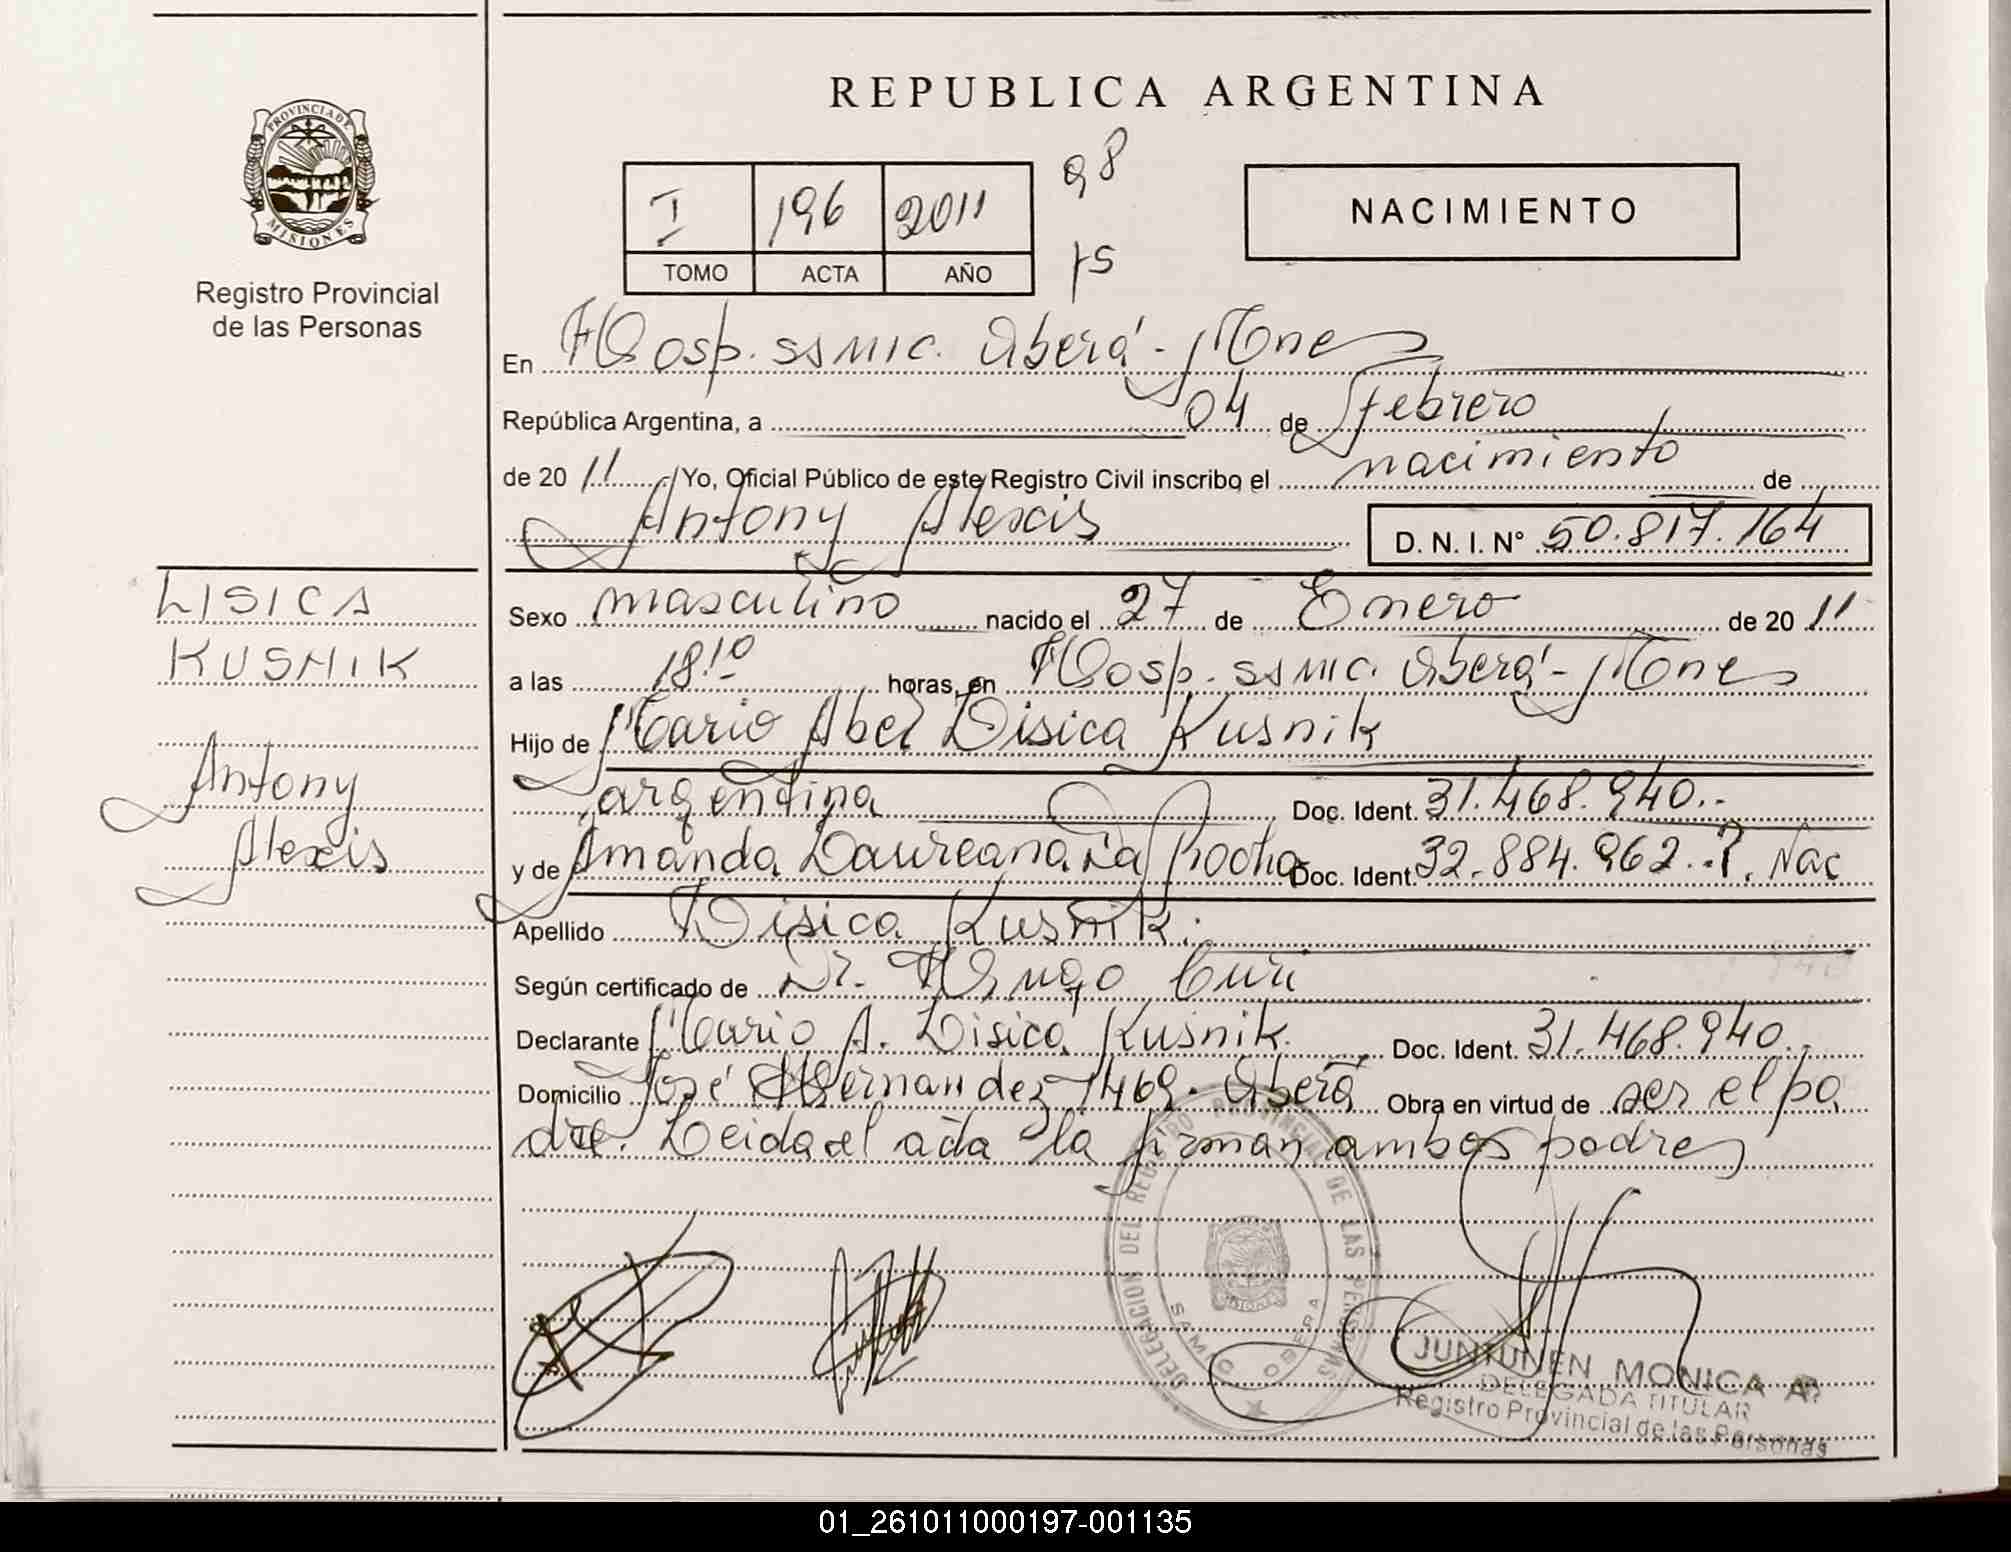 REPUBLICA ARGENTINA
PROVINCIA DE MISIONES
Registro Provincial
de las Personas
I 196 2011
TOMO ACTA AÑO
98
15
NACIMIENTO
En Hosp. SSMIC. Oberá - Mnes
República Argentina, a 04 de febrero
de 2011 Yo, Oficial Público de este Registro Civil inscribo el nacimiento de
Antony Alexis D. N. I. N° 50.817.164
LISICA
KUSNIK
Antony
Alexis
Sexo masculino nacido el 27 de Enero de 2011
a las 18:10 horas, en Hosp. SSMIC. Oberá - Mnes
Hijo de Mario Abel Lisica Kusnik
argentina Doc. Ident. 31.468.940..
y de Amanda Laureana Da Rocha Doc. Ident. 32.884.962.. Nac
Apellido Lisica Kusnik.
Según certificado de Dr. Hugo Curi
Declarante Mario A. Lisica Kusnik. Doc. Ident. 31.468.940..
Domicilio José Hernandez 1469. Oberá Obra en virtud de ser el pa
dre. Leida el acta la firman ambos padres
DELEGACION DEL REGISTRO PROVINCIAL DE LAS PERSONAS
SAMIC OBERA
JUNTUNEN MONICA A.
DELEGADA TITULAR
Registro Provincial de las Personas
01_261011000197-001135